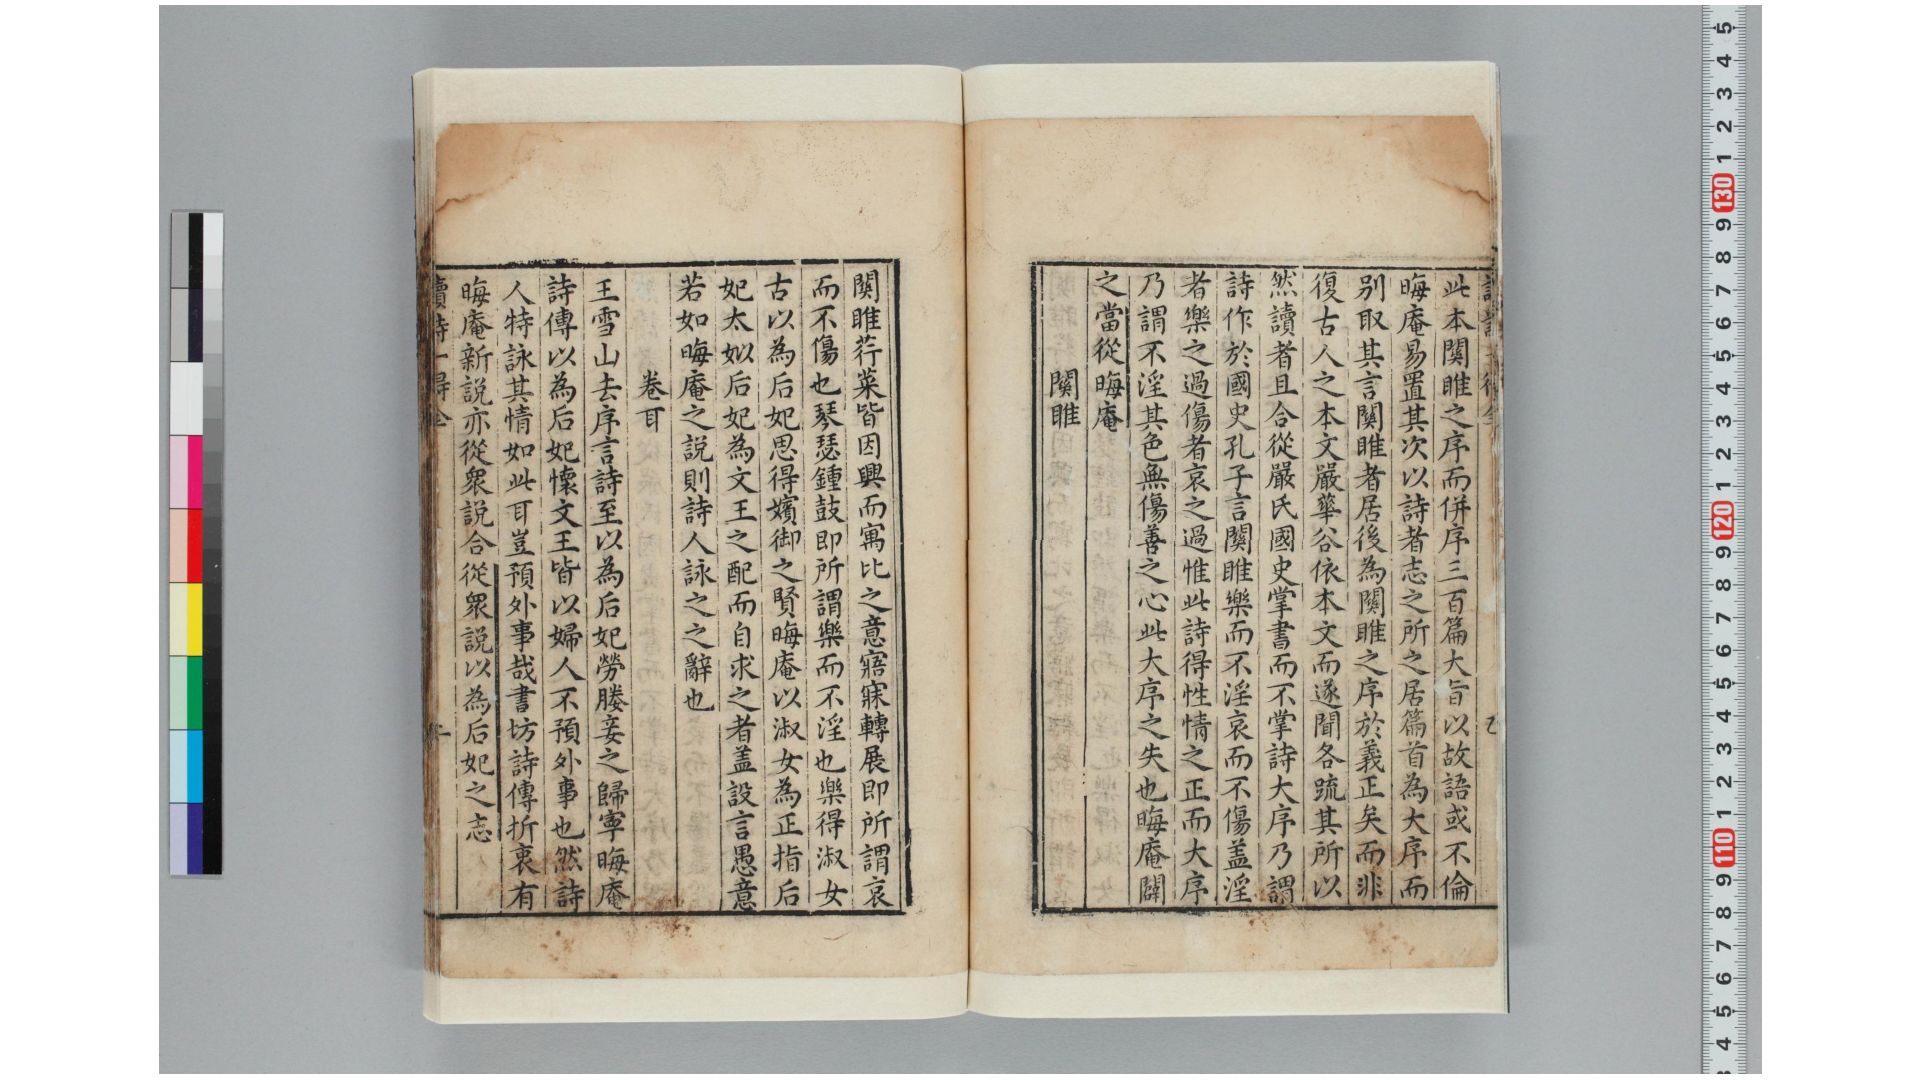 此本關雎之序而併序三百篇大旨以故語或不倫
晦庵易置其次以詩者志之所之居篇首為大序而
別取其言關雎者居後為關雎之序於義正矣而非
復古人之本文嚴華谷依本文而遂聞各䟽其所以
然讀者且合從嚴氏國史掌書而不掌詩大序乃謂
詩作於國史孔子言關雎樂而不淫哀而不傷盖淫
者樂之過傷者哀之過惟此詩得性情之正而大序
乃謂不淫其色無傷善之心此大序之失也晦庵闢
之當從晦庵
關雎
關雎荇菜皆因興而寓比之意寤寐轉展即所謂哀
而不傷也琴瑟鍾鼓即所謂樂而不淫也樂得淑女
古以為后妃思得嬪御之賢晦庵以淑女為正指后
妃太姒后妃為文王之配而自求之者盖設言愚意
若如晦庵之說則詩人詠之之辭也
卷耳
王雪山去序言詩至以為后妃勞媵妾之歸寧晦庵
詩傳以為后妃懷文王皆以婦人不預外事也然詩
人特詠其情如此耳豈預外事哉書坊詩傳折衷有
晦庵新說亦從衆說合從衆說以為后妃之志
讀詩一得全
二
130
120
110